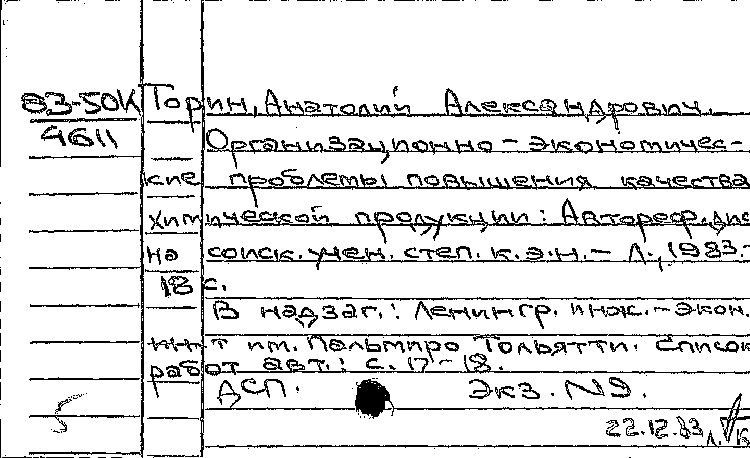 83-50К Торин, Анатолий Александрович.
9611
Организационно-экономичес-
кие проблемы повышения качества
химической продукции: Автореф. дис
на соиск. учен. степ. к.э.н.- Л., 1983.-
18 с.
В надзаг.: Ленингр. инж.-экон.
ин-т им. Пальмиро Тольятти. Список
работ авт.: с. 17-18.
ДСП. Экз. №9.
5
22.12.83